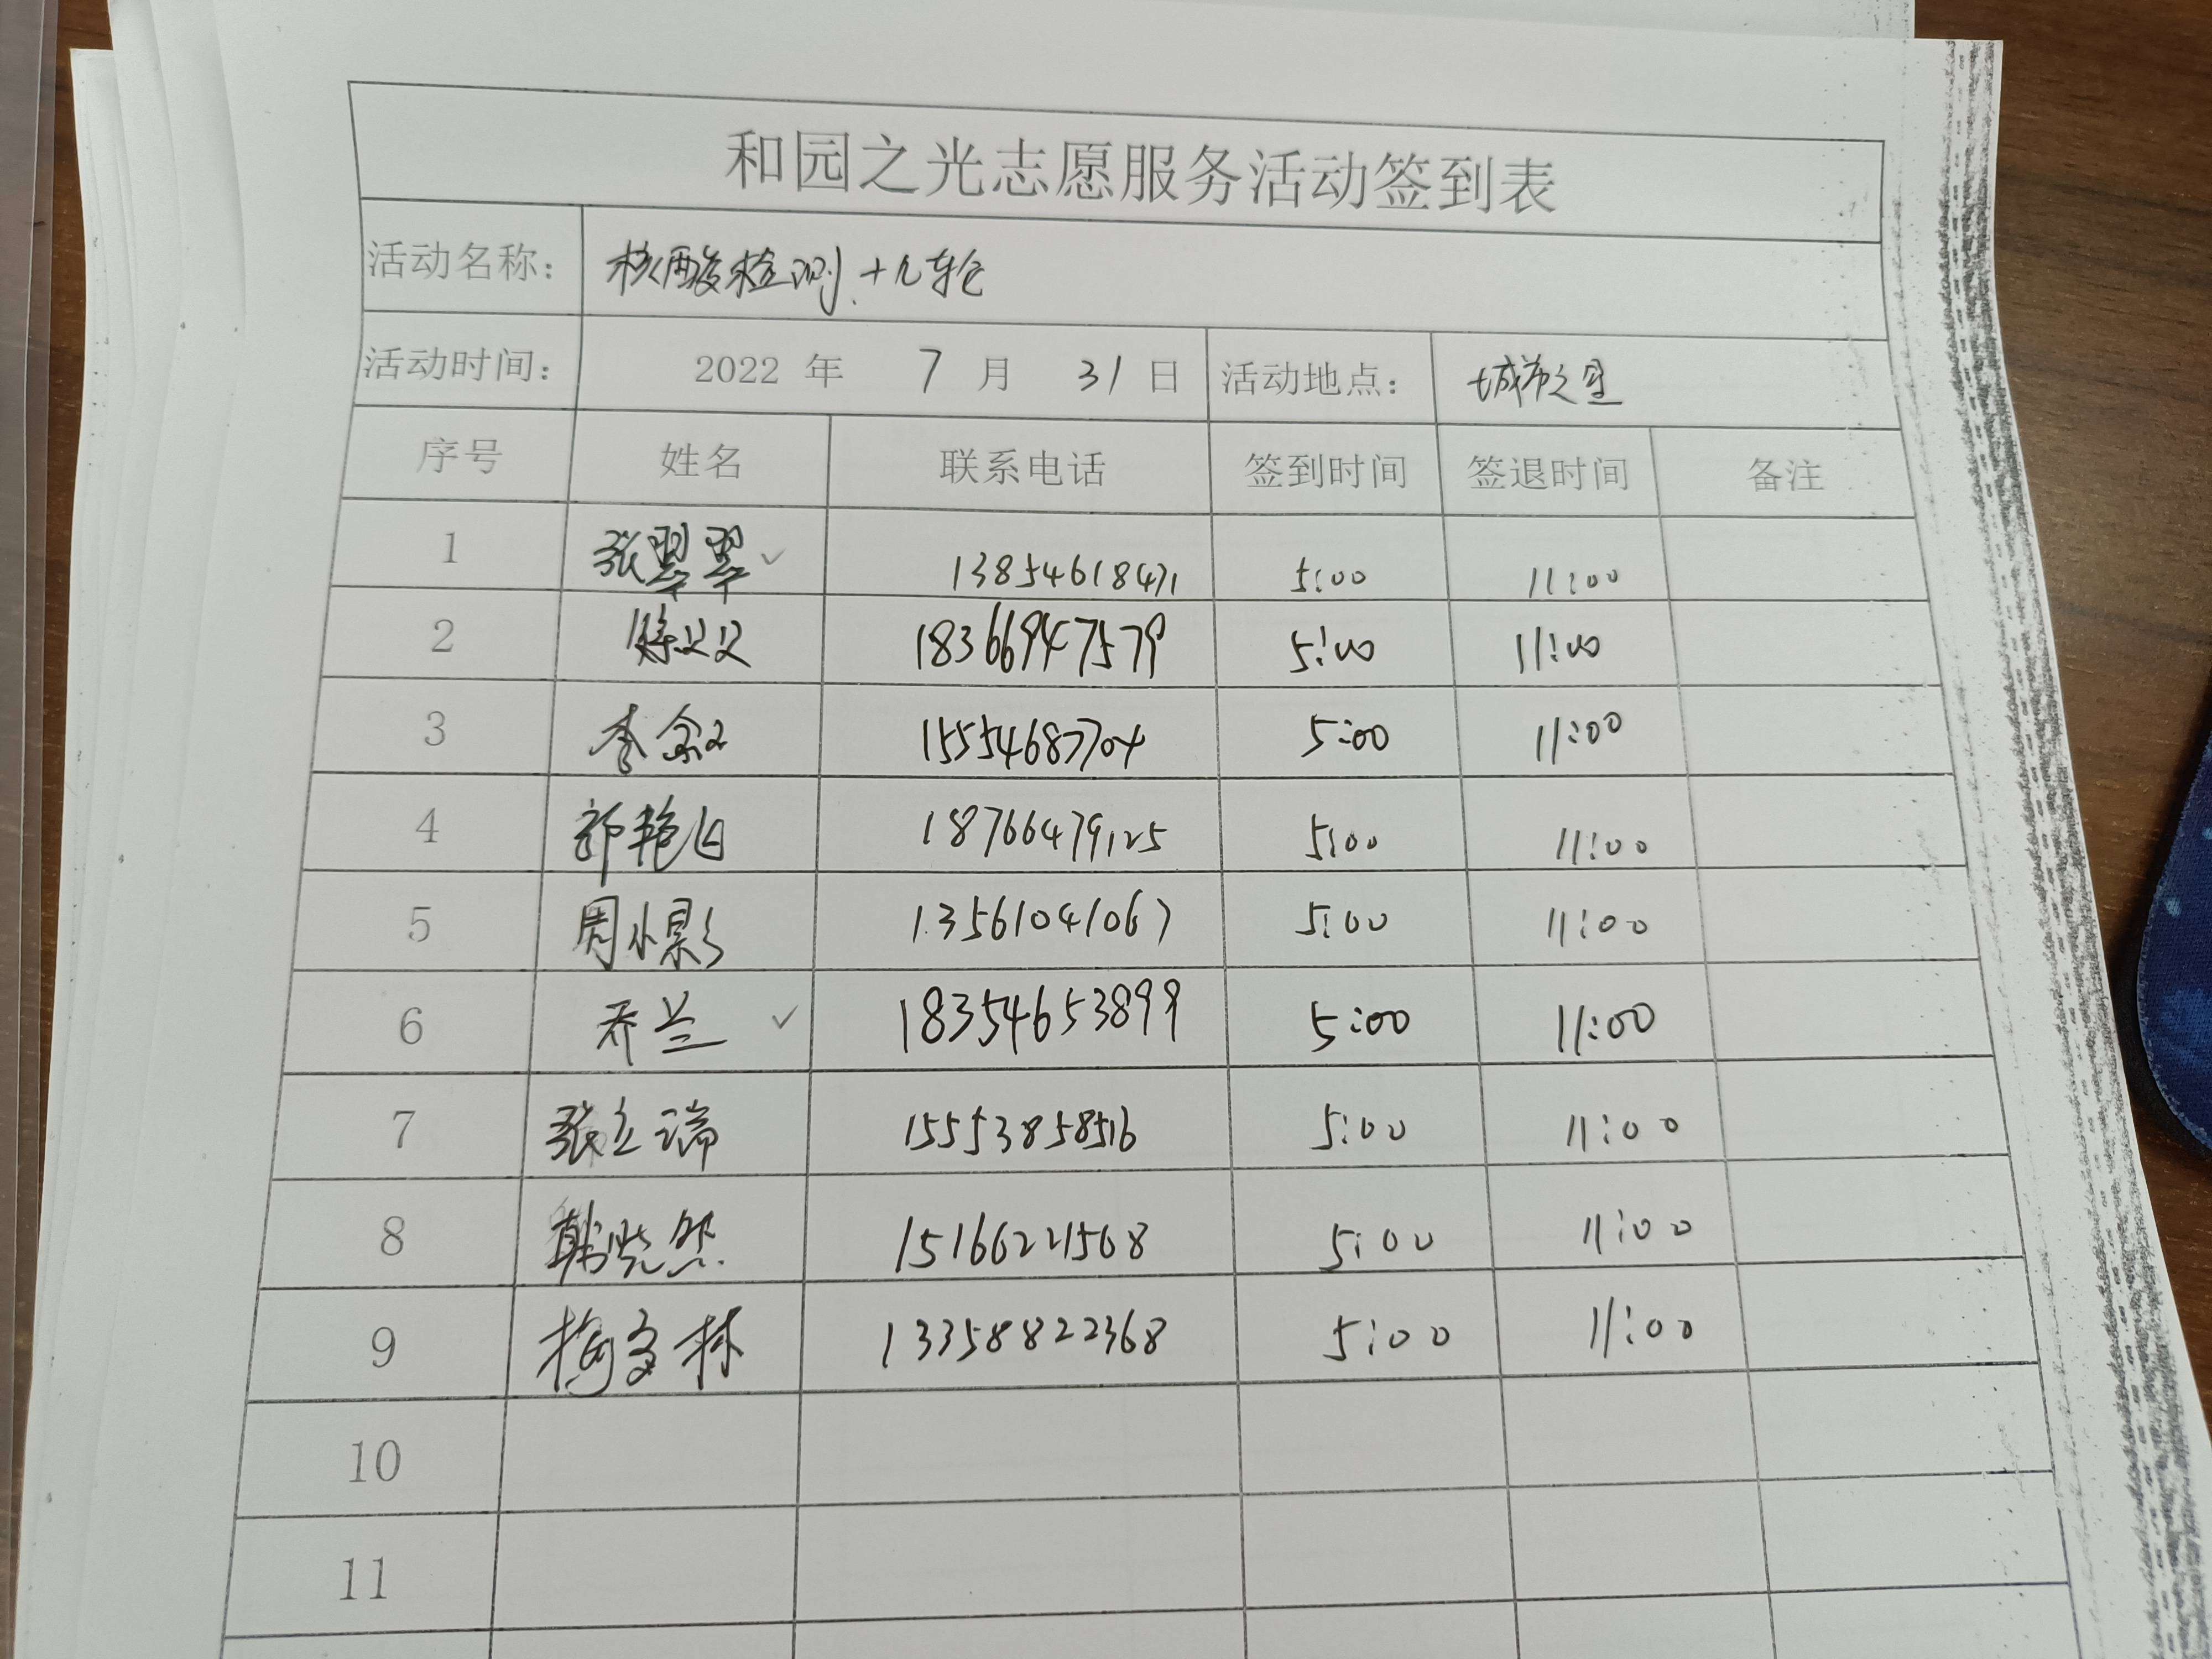 和园之光志愿服务活动签到表
活动名称： 核酸检测.十八轮
活动时间： 2022 年 7 月 31 日 活动地点： 城市之星
序号 姓名 联系电话 签到时间 签退时间 备注
1 张翠翠 ✓ 13854618471 5:00 11:00
2 18366947579 5:00 11:00
3 李 15554687704 5:00 11:00
4 艳 18766479125 5:00 11:00
5 周小影 13561041067 5:00 11:00
6 乔兰 ✓ 18354653899 5:00 11:00
7 张立瑞 15553858516 5:00 11:00
8 韩晓然 15166221568 5:00 11:00
9 梅林 13358822368 5:00 11:00
10
11